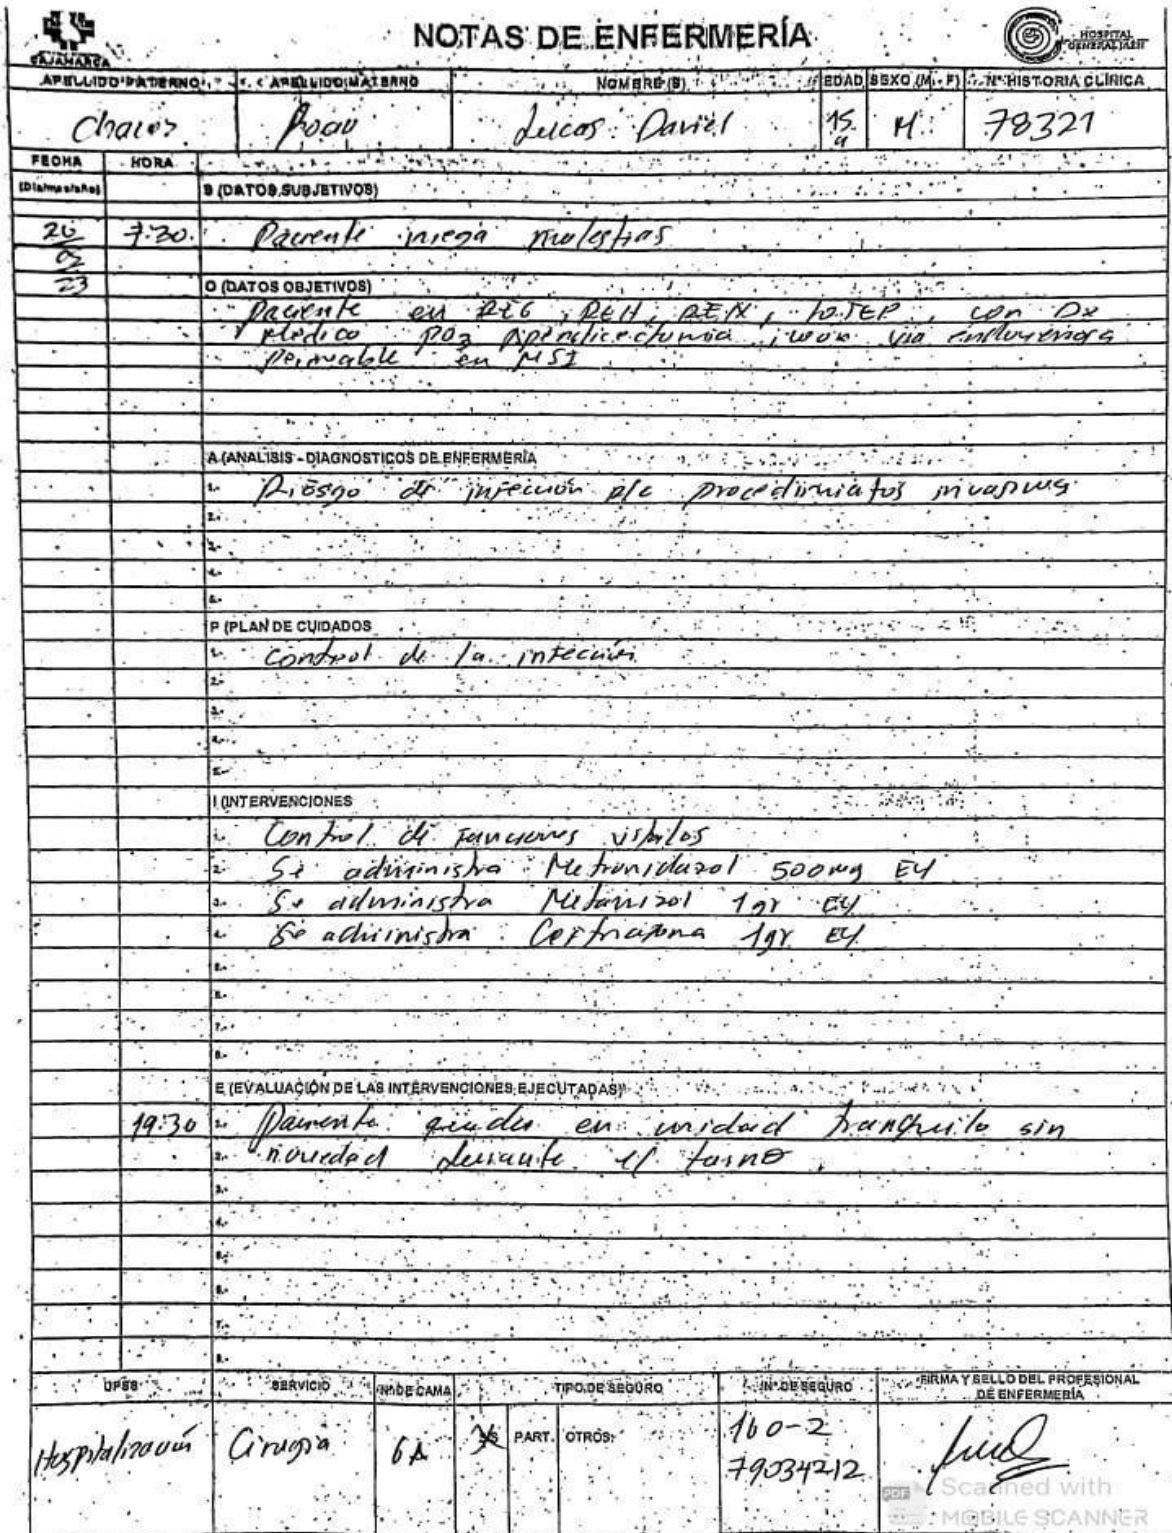 NOTAS DE ENFERMERÍA
CAJAMARCA
HOSPITAL GENERAL JAEN
APELLIDO PATERNO APELLIDO MATERNO NOMBRE(S) EDAD SEXO (M - F) N° HISTORIA CLÍNICA
Lucas Daniel 15 a M 78321
FECHA HORA
(Dia/mes/año) S (DATOS SUBJETIVOS)
7:30 Paciente niega molestias
23
O (DATOS OBJETIVOS)
Paciente en REG, REH, REN, LOTEP, con Dx
Médico PO2 Apendicectomia, con via endovenosa
permeable en MSI
A (ANALISIS - DIAGNOSTICOS DE ENFERMERIA
1.- Riesgo de infección p/c procedimiatos invasivos
2.-
3.-
4.-
5.-
P (PLAN DE CUIDADOS
1.- Control de la infección
2.-
3.-
4.-
5.-
I (INTERVENCIONES
1.- Control de funciones vitales
2.- Se administra Metronidazol 500mg EV
3.- Se administra Metamizol 1gr EV
4.- Se administra Ceftriaxona 1gr EV
5.-
6.-
7.-
8.-
E (EVALUACIÓN DE LAS INTERVENCIONES EJECUTADAS)
19:30 1.- Paciente queda en unidad tranquilo sin
2.- novedad durante el turno
3.-
4.-
5.-
6.-
7.-
8.-
UPSS SERVICIO N° DE CAMA TIPO DE SEGURO N° DE SEGURO FIRMA Y SELLO DEL PROFESIONAL DE ENFERMERÍA
Hospitalización Cirugía 6A PART. OTROS: 160-2
79034212
PDF Scanned with
MOBILE SCANNER